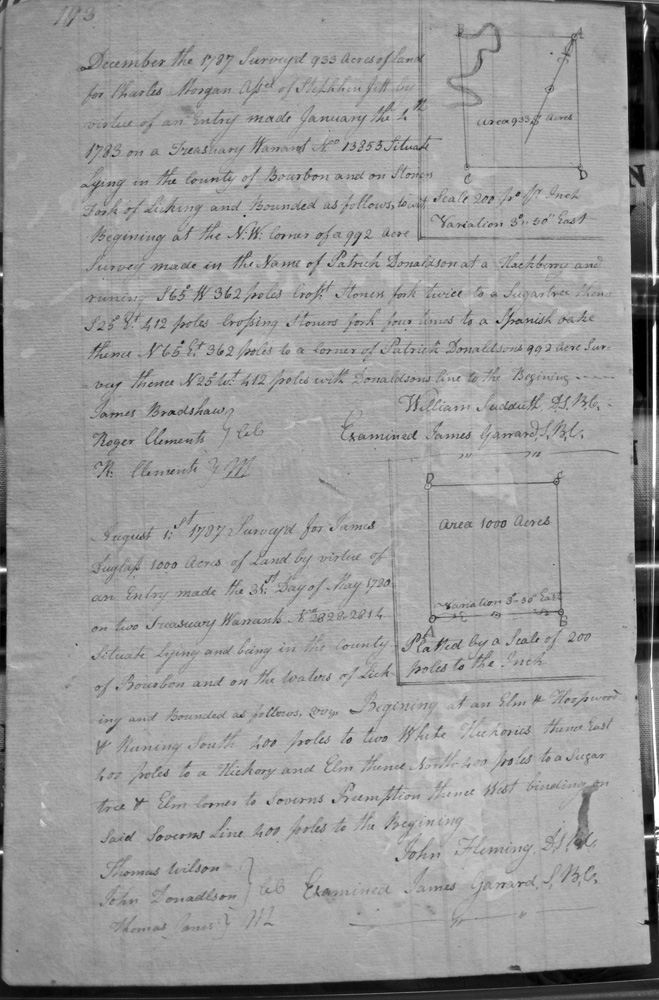 173
December the 1787 Surveyd 933 Acres of land
for Charles Morgan Assee of Stephhen Jett by
virtue of an Entry made January the 4th
1783 on a Treasuary Warrant No 13853 Situate
Lying in the County of Bourbon and on Stoners
Fork of Licking and Bounded as follows, to wit
Begining at the N.W. Corner of a 992 acre
Survey made in the Name of Patrick Donaldson at a Hackberry and
runing S65 W 362 poles Crosst Stoners fork twice to a Sugartree thence
S25 Et 412 poles Crossing Stoners fork four times to a Spanish oake
thence N65 Et 362 poles to a Corner of Patrick Donaldsons 992 acre Sur-
vey thence N25 Wt 412 poles with Donaldsons line to the Begining
William Sudduth D.S.B.C.
James Bradshaw
Roger Clements } CC
Examined James Garrard S.B.C.
Clements } M
B A
Area 933 Acres
C D
Scale 200 pos pr Inch
Variation 3°-50" East
August 1st 1787 Surveyd for James
Duglass 1000 Acres of Land by virtue of
an Entry made the 31st Day of May 1780
on two Treasuary Warrants Nos 2828-2814
Situate Lying and being in the County
of Bourbon and on the Waters of Lick
ing and Bounded as follows, Begining at an Elm & Hoopwood
& Runing South 400 poles to two White Hickories thence East
400 poles to a Hickory and Elm thence North 400 poles to a Sugar
tree & Elm Corner to Soverns Preemption thence West binding on
Said Soverns Line 400 poles to the Begining
John Fleming, D.S.
Thomas Wilson
John Donaldson } CC Examined James Garrard, S.B.C.
Thomas Jones } M
Area 1000 Acres
Variation 3-50" East
A B
Platted by a Scale of 200
poles to the Inch